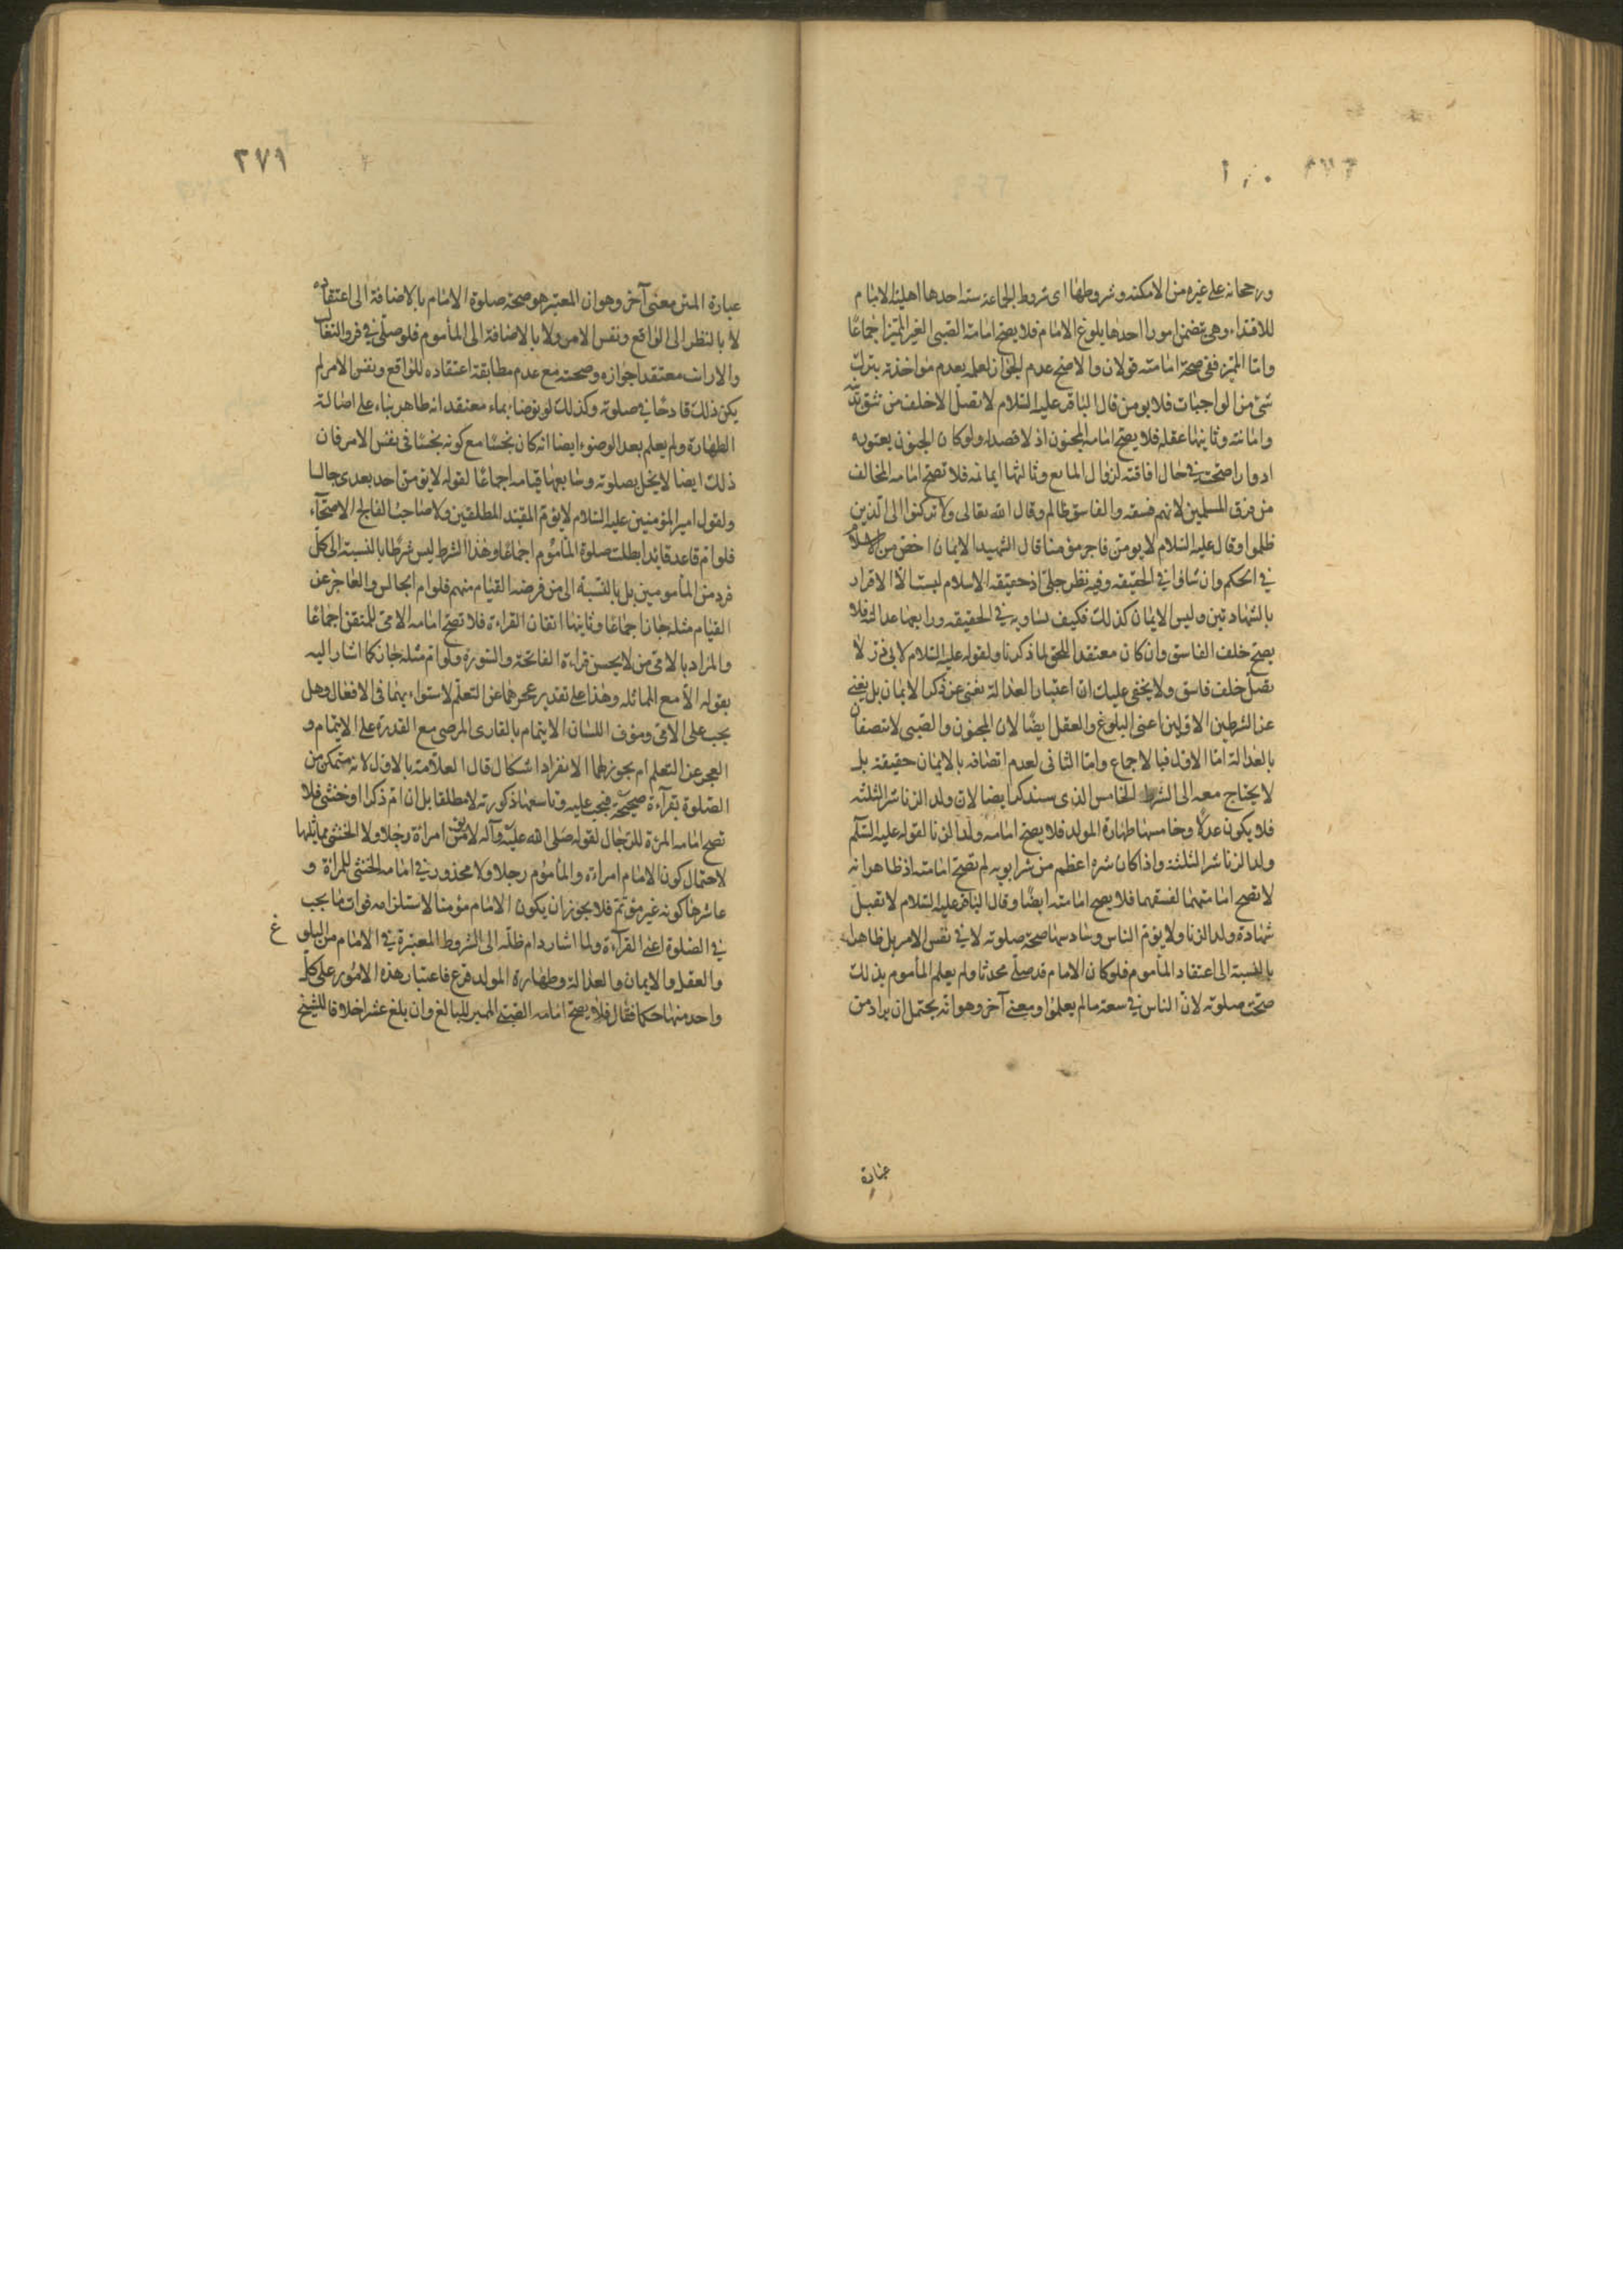 ورجحانه على غيره من الامكنه وشروطها اى شروط الجماعة ستة احدها اهلية الامام
للاقتداء وهى تتضمن امورا احدها بلوغ الامام فلا يصح امامة الصبى الغير المميز اجماعًا
وامّا المميز ففى صحة امامته قولان والاصح عدم الجواز لعلمه بعدم مواخذته بترك
شئ من الواجبات فلا يومن قال الباقر عليه السّلام لا تصلّ الا خلف من تثق بدينه
وامانته وثانيها عقله فلا يصح امامة المجنون اذ لا قصد له ولو كان الجنون يعتوره
ادوارا صحت فى حال افاقته لزوال المانع وثالثها ايمانه فلا تصح امامه المخالف
من فرق المسلمين لانهم فسقه والفاسق ظالم وقال الله تعالى ولا تركنوا الى الّذين
ظلموا وقال عليه السّلام لا يومنّ فاجر مؤمنا قال الشهيد الايمان اخصّ من الاسلام
فى الحكم وان ساوا فى الحقيقه وفيه نظر جلىّ اذ حقيقه الاسلام ليست الّا الاقرار
بالشهادتين وليس الايمان كذلك فكيف يساويه فى الحقيقه ورابعها عدالته فلا
يصح خلف الفاسق وان كان معتقدا للحق لما ذكرنا ولقوله عليه السّلام لابى ذر لا
تصلّ خلف فاسق ولا يخفى عليك ان اعتبار العدالة يغنى عن ذكر الايمان بل يغنى
عن الشرطين الاولين اعنى البلوغ والعقل ايضًا لان المجنون والصبى لا يتصفان
بالعدالة امّا الاول فبالاجماع وامّا الثانى لعدم اتصافه بالايمان حقيقة بل
لا يحتاج معه الى الشرط الخامس الذى سنذكر ايضا لان ولد الزنا شر الثلثه
فلا يكون عدلًا وخامسها طهارة المولد فلا يصح امامة ولد الزنا لقوله عليه السّلم
ولد الزنا شر الثلثة واذا كان شره اعظم من شر ابويه لم تصح امامته اذ ظاهر انه
لا تصح امامتهما لفسقهما فلا يصح امامته ايضًا وقال الباقر عليه السّلام لا تقبل
شهادة ولد الزنا ولا يؤمّ الناس وسادسها صحة صلوته لا فى نفس الامر بل ظاهرا
بالنسبة الى اعتقاد المأموم فلو كان الامام قد صلّى محدثا ولم يعلم المأموم بذلك
صحّت صلوته لانّ الناس فى سعة مالم يعلموا ومعنى آخر وهو انّه يحتمل ان يراد من
عبارة
٢٧١
عبارة المتن معنى آخر وهو ان المعتبر هو صحة صلوة الامام بالاضافة الى اعتقاده
لا بالنظر الى الواقع ونفس الامر ولا بالاضافة الى المأموم فلو صلّى فى فرو الثعالب
والارانب معتقدا جوازه وصحته مع عدم مطابقة اعتقاده للواقع ونفس الامر لم
يكن ذلك قادحًا فى صلوته وكذلك لو توضأ بماء معتقد انه طاهر بناء على اصالة
الطهارة ولم يعلم بعد الوضوء ايضا انه كان نجسًا مع كونه نجسًا فى نفس الامر فان
ذلك ايضا لا يخل بصلوته وسابعها قيامه اجماعًا لقوله لا يؤمن احد بعدى جالسا
ولقول امير المؤمنين عليه السّلام لا يؤمّ المقيّد المطلقين ولا صاحب الفالج الاصحّآء
فلو امّ قاعد قائما بطلت صلوة المأموم اجماعًا وهذا الشرط ليس شرطًا بالنسبة الى كلّ
فرد من المأمومين بل بالنسبة الى من فرضه القيام منهم فلو ام الجالس والعاجز عن
القيام مثله جاز اجماعًا وثامنها اتقان القراءة فلا تصحّ امامه الامىّ للمتقن اجماعًا
والمراد بالامّى من لا يحسن قراءة الفاتحة والسّورة ولو امّ مثله جاز كما اشار اليه
بقوله الّا مع المماثله وهذا على تقدير عجزهما عن التعلّم لاستواء بينهما فى الافعال وهل
يجب على الامّى ومؤف اللسان الايتمام بالقارى المرضى مع القدرة على الايتمام و
العجز عن التعلم ام يجوز لهما الانفراد اشكال قال العلامة بالاول لانه متمكن من
الصّلوة بقرآءة صحيحة فتجب عليه وتاسعها ذكورته لا مطلقا بل ان امّ ذكرا او خنثى فلا
تصح امامه المرئة للرّجال لقوله صلّى الله عليه وآله لا تؤمّن امراة رجلا ولا الخنثى بماثلها
لاحتمال كون الامام امراءة والمأموم رجلا ولا محذور فى امامه الخنثى للمراة و
عاشرها كونه غير مؤتمّ فلا يجوز ان يكون الامام مؤتمنا لاستلزامه فوات ما يجب
فى الصّلوة اعنى القرآءة ولما اشار دام ظلّه الى الشروط المعتبرة فى الامام من البلوغ
والعقل والايمان والعدالة وطهارة المولد فرّع فاعتبار هذه الامور على كلّ
واحد منها حكما فقال فلا يصحّ امامه الصّبى المميز للبالغ وان بلغ عشرا خلافا للشيخ